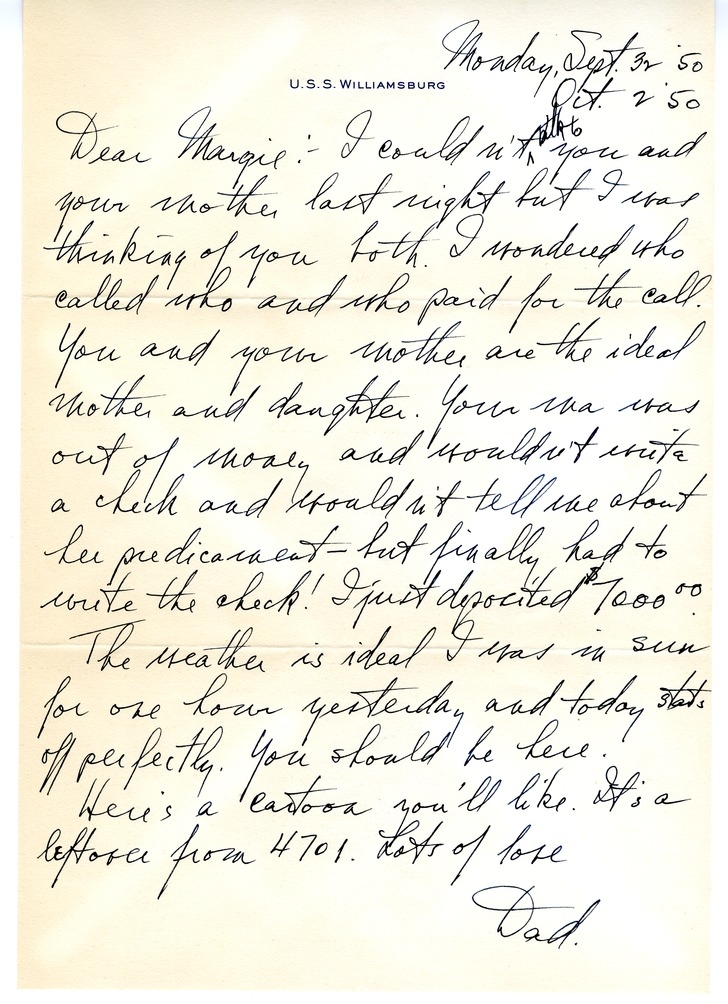 Monday, Sept. 32 '50
U.S.S. WILLIAMSBURG
Oct. 2 '50
talk to
Dear Margie:- I couldn't you and
your mother last night but I was
thinking of you both. I wondered who
called who and who paid for the call.
You and your mother are the ideal
mother and daughter. Your ma was
out of money and wouldn't write
a check and wouldn't tell me about
her predicament - but finally had to
write the check! I just deposited $700000.
The weather is ideal I was in sun
for one hour yesterday and today starts
off perfectly. You should be here.
Here's a cartoon you'll like. It's a
leftover from 4701. Lots of love
Dad.